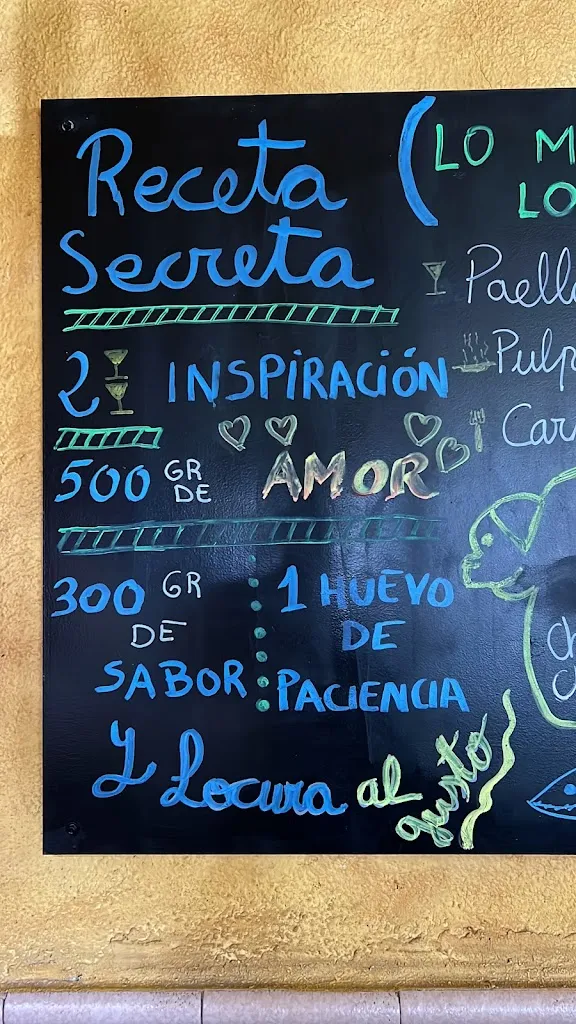 Receta
Secreta
2 INSPIRACIÓN
500 GR
DE AMOR
300 GR
DE
SABOR
1 HUEVO
DE
PACIENCIA
Y Locura al gusto
(LO M
LO
Paella
Pulp
Car